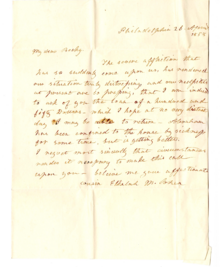 Philadelphia 21
My dear
The severe affliction that
has so suddenly come upon us has rendered
our situation truly distressing and our
at present one so pressing, that I am induced
to ask of you the loan of a hundred and
fifty Dollars. which I hope at no very distant
day I may be able to return.
has been confined to the house by sickness
for some time, but is getting better
I regret most sincerely that circumstances
render it necessary to make this call
upon you — believe me your affectionate